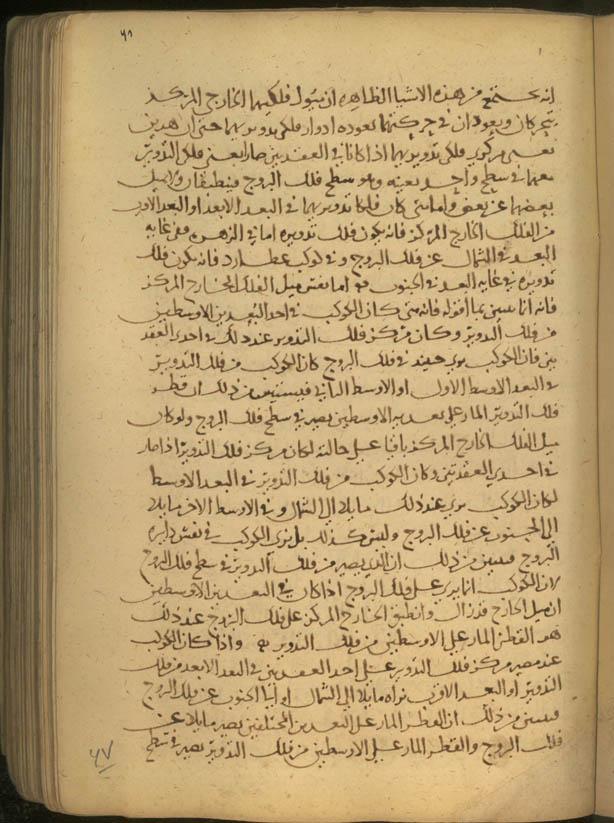 ٦٨
انه يجتمع من هذه الاشيا الظاهره ان نقول فلكيهما الخارجي المركز
يتحركان ويعودان في حركتهما بعوده ادوار فلكي تدويريهما حتى ان هذين
نعني مركزي فلكي تدويريهما اذا كانا في العقدتين صارا نعني فلكي التدوير
معهما في سطح واحد بعينه وهو سطح فلك البروج فينطبقان ولا يميل
بعضهما عن بعض واما متى كان فلكا تدويريهما في البعد الابعد او البعد الاقرب
من الفلك الخارج المركز فانه يكون فلك تدويره اما في الزهره ففي غايه
البعد في الشمال عن فلك البروج وفي كوكب عطارد فانه يكون فلك
تدويره في غايه البعد في الجنوب اما نفس ميل الفلك الخارج المركز
فانه انما يتبين بما اقوله فانه متى كان الكوكب في احد البعدين الاوسطين
من فلك التدوير وكان مركز فلك التدوير عند ذلك في احدى العقد
تين فان الكوكب يرى حينئذ في فلك البروج كان الكوكب من فلك التدوير
في البعد الاوسط الاول او الاوسط الثاني فيستبين من ذلك ان قطر
فلك التدوير المار على بعديه الاوسطين يصير في سطح فلك البروج ولو كان
ميل الفلك الخارج المركز باقيا على حالته لكان مركز فلك التدوير اذا صار
في احدى العقدتين وكان الكوكب من فلك التدوير في البعد الاوسط
لكان الكوكب يرى عند ذلك مايلا الى الشمال وفي الاوسط الاخر مايلا
الى الجنوب عن فلك البروج وليس كذلك بل نرى الكوكب في نفس دايره
البروج فتبين من ذلك ان الذي يصير من فلك التدوير في سطح فلك البروج
لان الكوكب انما يرى على فلك البروج اذا كان في البعدين الاوسطين
ان ميل الخارج قد زال وانطبق الخارج المركز على فلك البروج عند ذلك
هو القطر المار على الاوسطين من فلك التدوير واذا كان الكوكب
عند مصير مركز فلك التدوير على احد العقدتين في البعد الابعد من فلك
التدوير او البعد الاقرب نراه مايلا الى الشمال او الى الجنوب عن فلك البروج
فتبين من ذلك ان القطر المار على البعدين المختلفين يصير مايلا عن
فلك البروج والقطر المار على الاوسطين من فلك التدوير يصير في سطح
٤٧